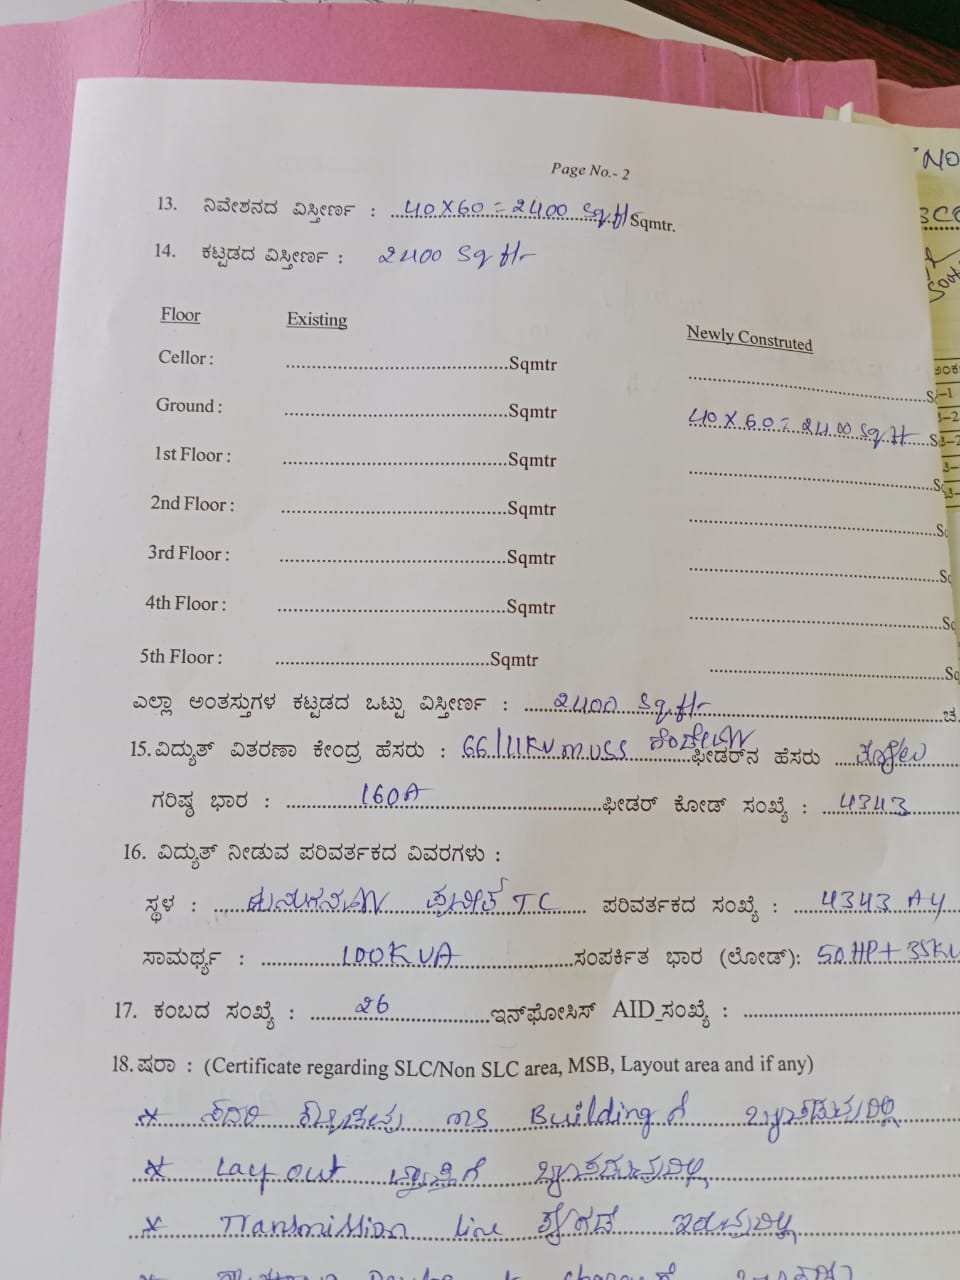 Page No.- 2
13. ನಿವೇಶನದ ವಿಸ್ತೀರ್ಣ : 40X60=2400 Sq.ft Sqmtr.
14. ಕಟ್ಟಡದ ವಿಸ್ತೀರ್ಣ : 2400 Sq ft
Floor Existing Newly Construted
Cellor : Sqmtr
Ground : Sqmtr 40X60=2400 Sq.ft
1st Floor : Sqmtr
2nd Floor : Sqmtr
3rd Floor : Sqmtr
4th Floor : Sqmtr
5th Floor : Sqmtr
ಎಲ್ಲಾ ಅಂತಸ್ತುಗಳ ಕಟ್ಟಡದ ಒಟ್ಟು ವಿಸ್ತೀರ್ಣ : 2400 Sq.ft ಚ.
15. ವಿದ್ಯುತ್ ವಿತರಣಾ ಕೇಂದ್ರ ಹೆಸರು : 66/11KV MUSS ಫೀಡರ್‌ನ ಹೆಸರು
ಗರಿಷ್ಠ ಭಾರ : 160A ಫೀಡರ್ ಕೋಡ್ ಸಂಖ್ಯೆ : 4343
16. ವಿದ್ಯುತ್ ನೀಡುವ ಪರಿವರ್ತಕದ ವಿವರಗಳು :
ಸ್ಥಳ : TC ಪರಿವರ್ತಕದ ಸಂಖ್ಯೆ : 4343 A4
ಸಾಮರ್ಥ್ಯ : 100KVA ಸಂಪರ್ಕಿತ ಭಾರ (ಲೋಡ್): 50HP+35KV
17. ಕಂಬದ ಸಂಖ್ಯೆ : 26 ಇನ್‌ಫೋಸಿಸ್ AID ಸಂಖ್ಯೆ :
18. ಷರಾ : (Certificate regarding SLC/Non SLC area, MSB, Layout area and if any)
* ಸದರಿ MS Building ಗೆ
* Layout ವ್ಯಾಪ್ತಿಗೆ
* Transmission line ಕೆಳಗಡೆ ಇರುವುದಿಲ್ಲ